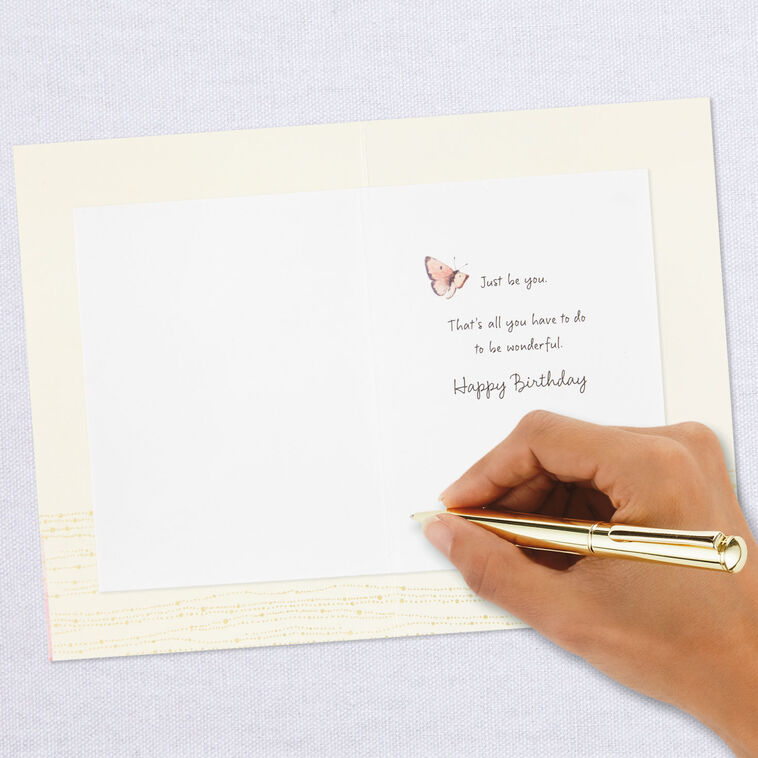 Just be you.
That's all you have to do
to be wonderful.
Happy Birthday